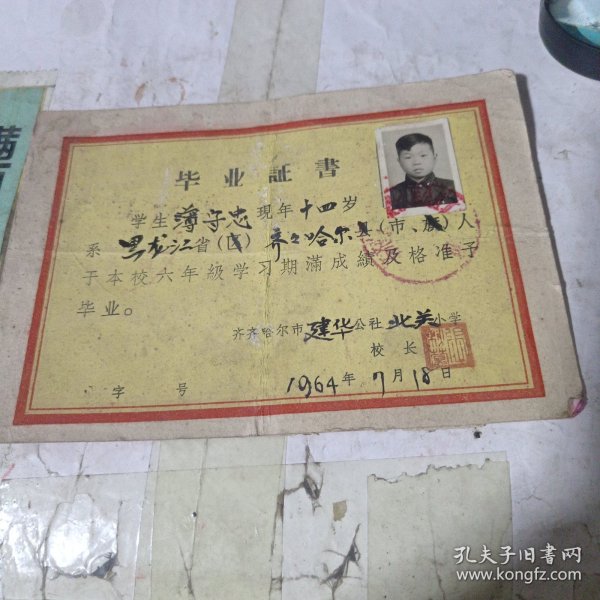 毕业証書
学生薄守忠现年十四岁
系黑龙江省(区)齐々哈尔县(市、旗)人
于本校六年級学习期滿成績及格准予
毕业。
齐齐哈尔市建华公社北关小学
校长
1964年7月18日
字 号
孔夫子旧書网
www.kongfz.com